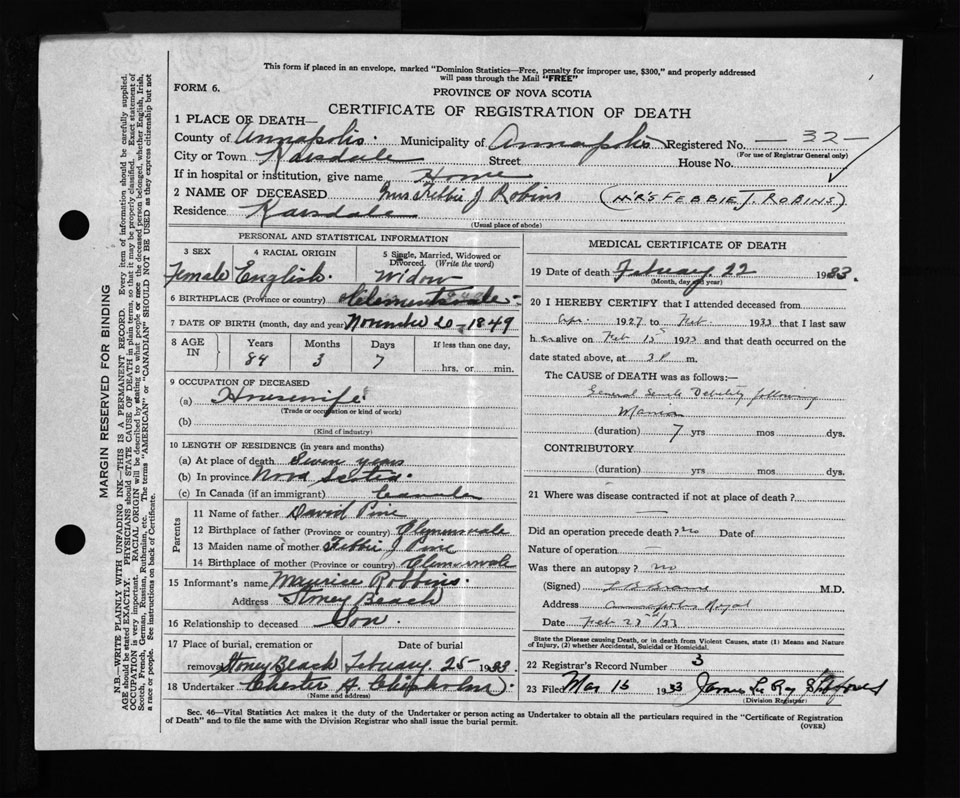 This form if placed in an envelope, marked "Dominion Statistics—Free, penalty for improper use, $300," and properly addressed
will pass through the Mail "FREE"
FORM 6.
PROVINCE OF NOVA SCOTIA
CERTIFICATE OF REGISTRATION OF DEATH
1 PLACE OF DEATH—
County of Annapolis. Municipality of Annapolis Registered No. 32
(For use of Registrar General only)
City or Town Karsdale Street House No.
If in hospital or institution, give name Home
2 NAME OF DECEASED Mrs Febbie J Robins (MRS FEBBIE J. ROBINS)
Residence Karsdale
(Usual place of abode)
PERSONAL AND STATISTICAL INFORMATION
3 SEX 4 RACIAL ORIGIN 5 Single, Married, Widowed or
Divorced. (Write the word)
Female English. Widow
6 BIRTHPLACE (Province or country) Clementsvale
7 DATE OF BIRTH (month, day and year) November 20-1849
8 AGE IN Years Months Days If less than one day,
84 3 7 hrs. or min.
9 OCCUPATION OF DECEASED
(a) Housewife
(Trade or occupation or kind of work)
(b)
(Kind of industry)
10 LENGTH OF RESIDENCE (in years and months)
(a) At place of death Seven years
(b) In province Nova Scotia.
(c) In Canada (if an immigrant) Canada
Parents
11 Name of father David Pine
12 Birthplace of father (Province or country)
13 Maiden name of mother Febbie J Pine
14 Birthplace of mother (Province or country)
15 Informant's name Maurice Robbins.
Address Stoney Beach
16 Relationship to deceased Son.
17 Place of burial, cremation or Date of burial
removal Stoney Beach February 25-1933
18 Undertaker Chester A.
(Name and address)
MEDICAL CERTIFICATE OF DEATH
19 Date of death February 22 1933.
(Month, day and year)
20 I HEREBY CERTIFY that I attended deceased from
Apr. 1927 to Feb. 1933 that I last saw
her alive on Feb 15 1933 and that death occurred on the
date stated above, at 3 P m.
The CAUSE of DEATH was as follows:—
General Senile Debility following
Mania
(duration) 7 yrs mos dys.
CONTRIBUTORY
(duration) yrs mos dys.
21 Where was disease contracted if not at place of death?
Did an operation precede death? no Date of
Nature of operation —
Was there an autopsy? no
(Signed) M.D.
Address Annapolis Royal
Date Feb /33
State the Disease causing Death, or in death from Violent Causes, state (1) Means and Nature
of Injury, (2) whether Accidental, Suicidal or Homicidal.
22 Registrar's Record Number 3
23 Filed Mar 15 1933 James Le Roy
(Division Registrar)
Sec. 46—Vital Statistics Act makes it the duty of the Undertaker or person acting as Undertaker to obtain all the particulars required in the "Certificate of Registration
of Death" and to file the same with the Division Registrar who shall issue the burial permit.
(OVER)
MARGIN RESERVED FOR BINDING
N.B.—WRITE PLAINLY WITH UNFADING INK—THIS IS A PERMANENT RECORD. Every item of information should be carefully supplied.
AGE should be stated EXACTLY. PHYSICIANS should STATE CAUSE OF DEATH in plain terms, so that it may be properly classified. Exact statement of
OCCUPATION is very important. RACIAL ORIGIN will be described by stating to what people or race the deceased person belonged, whether English, Irish,
Scotch, French, German, Russian, Ruthenian, etc. The terms "AMERICAN" or "CANADIAN" SHOULD NOT BE USED as they express citizenship but not
a race or people. See instructions on back of Certificate.